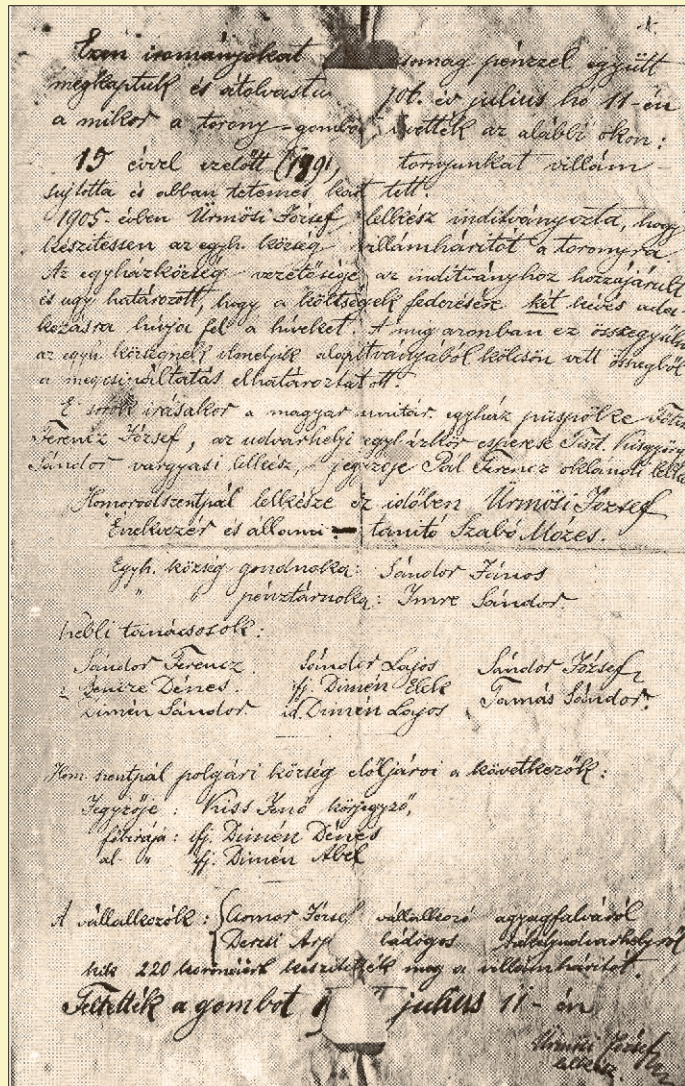 Ezen irományokat somag pénzzel együtt
megkaptuk és átolvastu év július hó 11-én
a mikor a torony-gombo vették az alábbi okon:
15 évvel ezelőtt (1891, tornyunkat villám
sujtotta és abban tetemes kárt tett.
1905. évben Ürmösi József lelkész inditványozta, hogy
készitessen az egyh. község villámháritót a toronyra
Az egyházközség vezetősége az inditványhoz hozzájárult
és ugy határozott, hogy a költségek fedezésére két ada-
kozásra hivja fel a hiveket. A mig azonban ez összegyüln
az egyh. községnek alapitványából kölcsön vett összegből
a megcsináltatás elhatároztatott.
E sorok irásakor a magyar unitár. egyház püspöke
Ferencz József, az udvarhelyi egyházkör esperese Tiszt. Kisgyörgy
Sándor vargyasi lelkész, jegyzője Pál Ferencz oklándi lelké
Homoródszentpál lelkésze ez időben Ürmösi József
Énekvezér és állami tanitó Szabó Mózes.
Egyh. község gondnoka: Sándor János
" " pénztárnoka: Imre Sándor.
kebli tanácsosok:
Sándor Ferencz Sándor Lajos Sándor József
Bencze Dénes. ifj. Dimén Elek Tamás Sándor.
Dimén Sándor. id. Dimén Lajos
Hom. szentpál polgári község elöljárói a következők:
Jegyzője: Kiss Jenő körjegyző,
főbirája: ifj. Dimén Dénes
al- " ifj. Dimén Ábel
A vállalkozók: József vállalkozó agyagfalváról
Derzsi Árp bádogos székelyudvarhelyről
kik 220 koronáért készitették meg a villámháritót.
Feltették a gombot július 11-én
Ürmösi József
lelkész